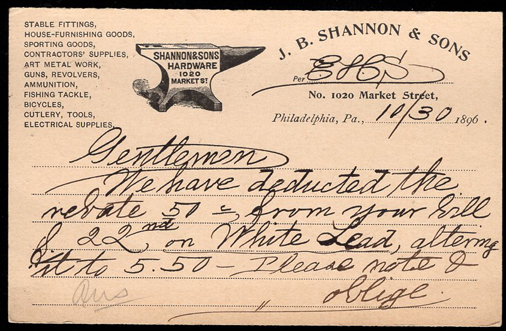 STABLE FITTINGS,
HOUSE-FURNISHING GOODS,
SPORTING GOODS,
CONTRACTORS' SUPPLIES,
ART METAL WORK,
GUNS, REVOLVERS,
AMMUNITION,
FISHING TACKLE,
BICYCLES,
CUTLERY, TOOLS,
ELECTRICAL SUPPLIES.
SHANNON & SONS
HARDWARE
1020
MARKET ST.
J. B. SHANNON & SONS
Per EHS
No. 1020 Market Street,
Philadelphia, Pa., 10/30 1896.
Gentlemen
We have deducted the
rebate 50 c, from your bill
of 22nd on White Lead, altering
it to 5.50 — Please note &
oblige.
Ans